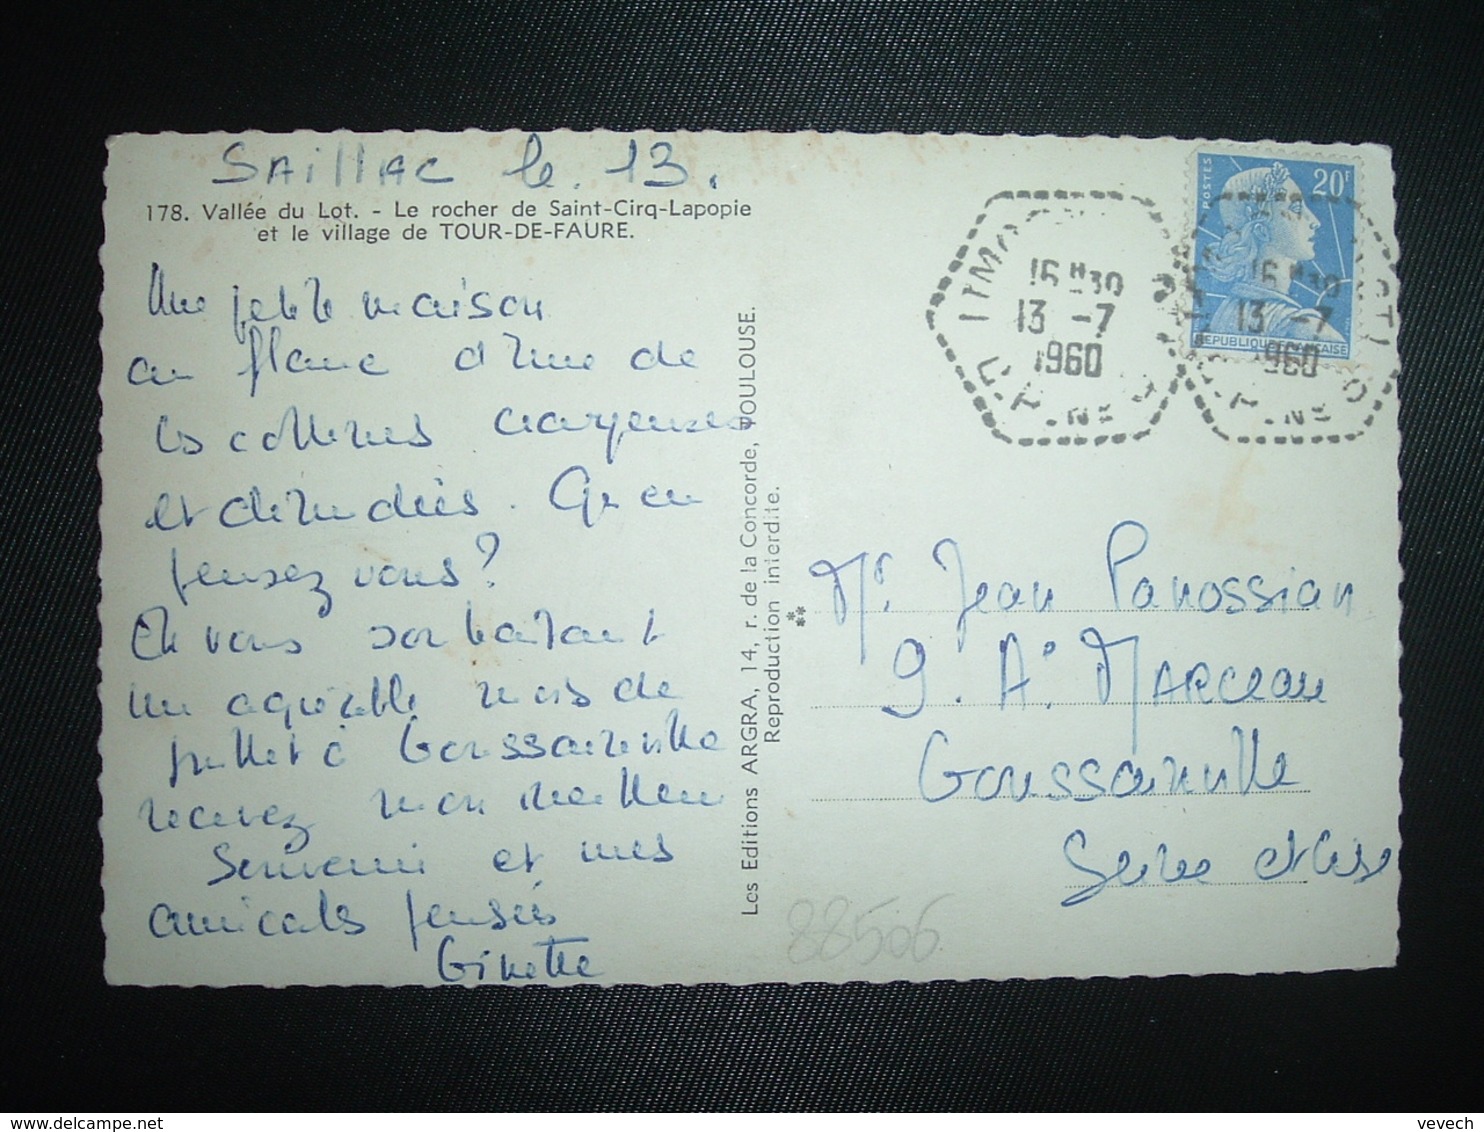 SAILLAC le 13.
178. Vallée du Lot. - Le rocher de Saint-Cirq-Lapopie
et le village de TOUR-DE-FAURE.
Une petite maison
au flanc d'une de
les collines
et dénudées. Qu'en
pensez vous?
En vous souhaitant
un agréable mois de
juillet à Goussainville
recevez mon meilleur
Souvenir et mes
amicales pensées
Ginette
Les Editions ARGRA, 14, r. de la Concorde, TOULOUSE.
Reproduction interdite.
POSTES
20F
REPUBLIQUE FRANÇAISE
16 H30
13 -7
1960
16 H30
13 -7
1960
Mr Jean Panossian
9. A. MARCEAU
Goussainville
Seine et Oise
88506
vevech